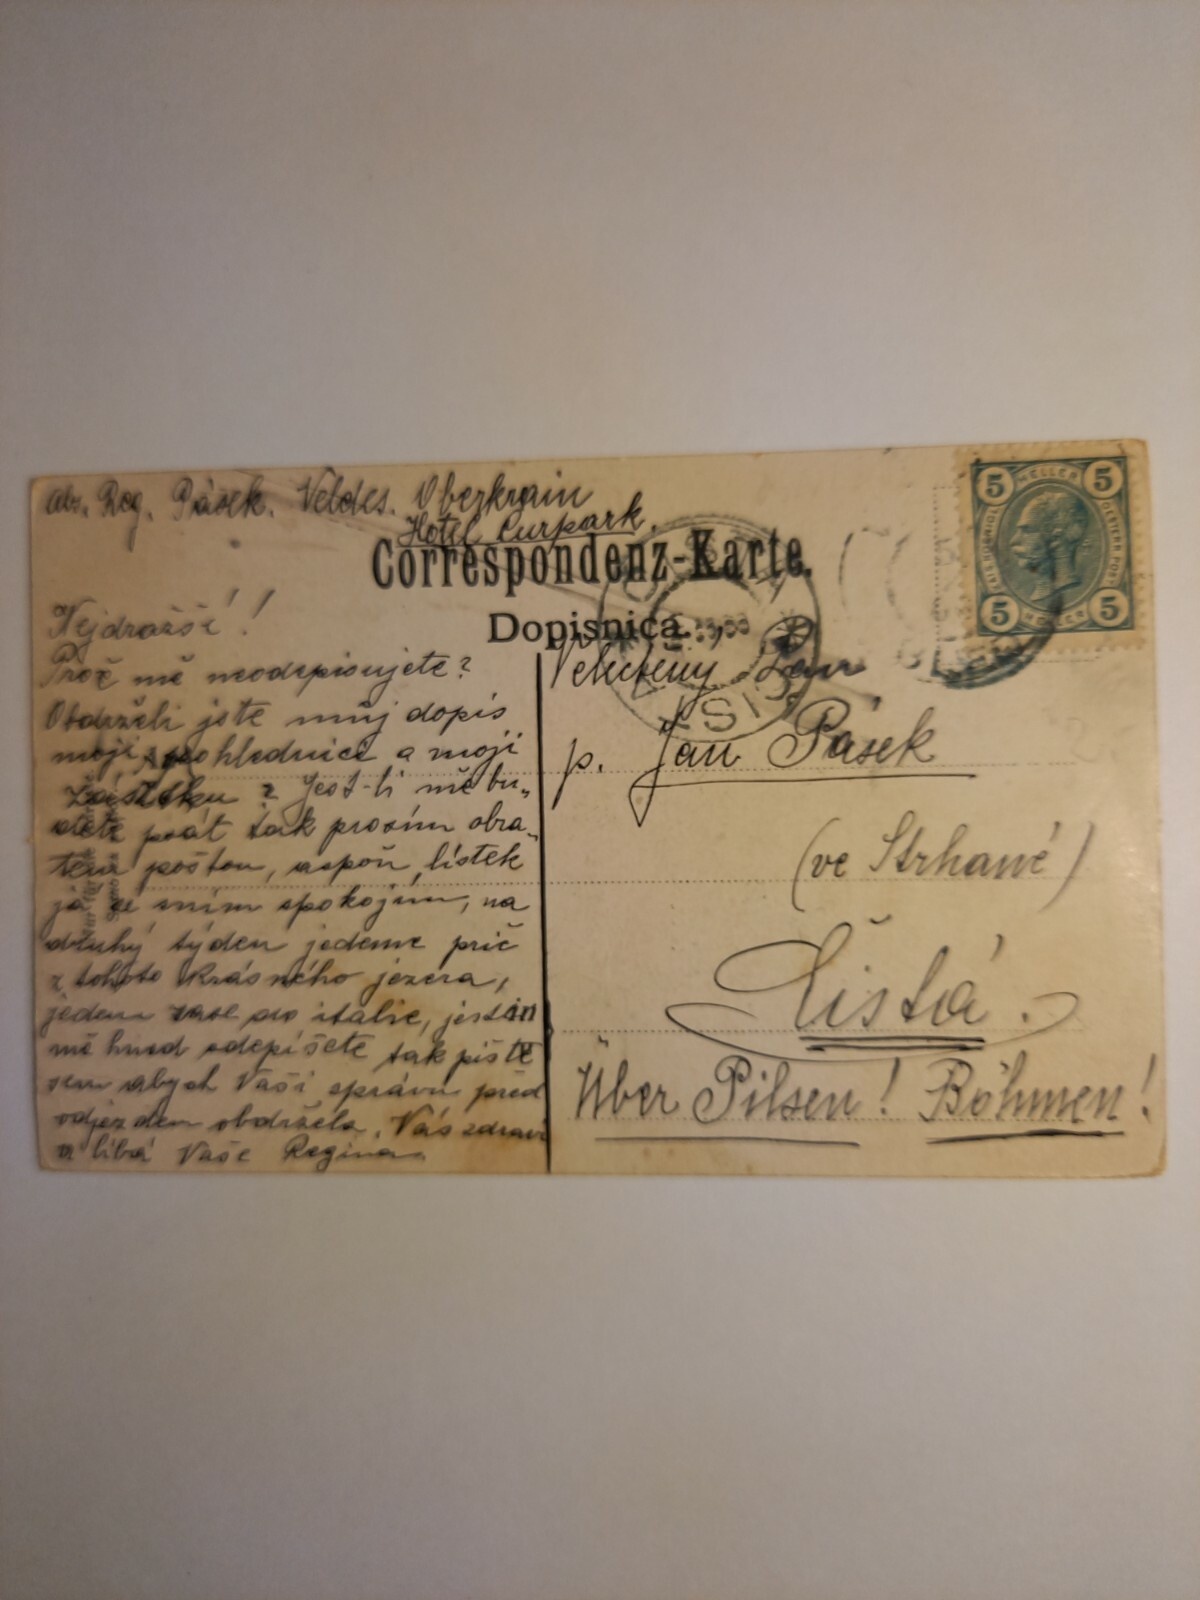 abs. Reg. Pásek. Veldes. Oberkrain
Hotel Curpark.
Correspondenz-Karte.
Dopisnica.
Nejdražší!
Proč mě neodepisujete?
Obdrželi jste můj dopis
moji pohlednici a moji
? Jest-li mě bu„
dete psát tak prosím obra„
tem poštou, aspoň lístek
já se s ním spokojím, na
druhý týden jedeme prič
z tohoto krásného jezera,
jedem zase do italie, jestin
mě hned odepíšete tak pište
sem abych Vaší správu před
odjezdem obdržela. Vás zdraví
a líbá Vaše Regina
Velectěný Pan
p. Jan Pásek
(ve Strhané)
Čistá.
Über Pilsen! Böhmen!
5 HELLER 5
5 HELLER 5